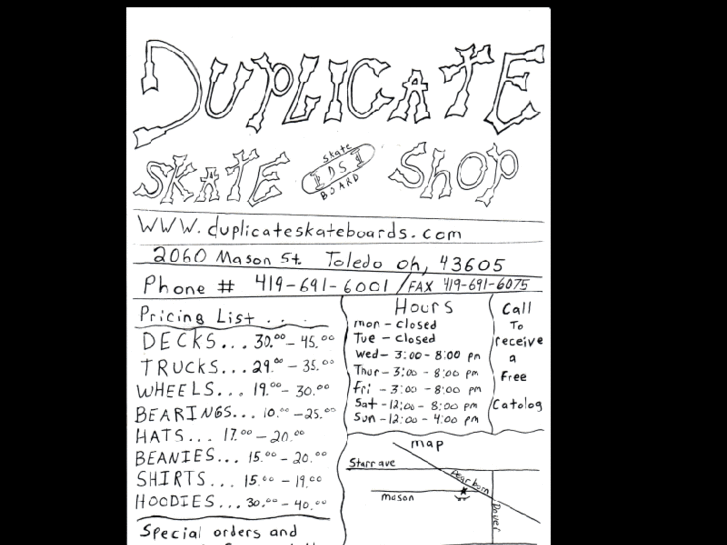 DUPLICATE
SKATE SHOP
skate
DS
BOARD
WWW.duplicateskateboards.com
2060 Mason St. Toledo oh, 43605
Phone # 419-691-6001 / FAX 419-691-6075
Pricing List . . .
DECKS... 30.00 - 45.00
TRUCKS... 29.00 - 35.00
WHEELS... 19.00 - 30.00
BEARINGS... 10.00 - 25.00
HATS... 17.00 - 20.00
BEANIES... 15.00 - 20.00
SHIRTS... 15.00 - 19.00
HOODIES... 30.00 - 40.00
Special orders and
Hours
mon - closed
Tue - closed
Wed - 3:00 - 8:00 pm
Thur - 3:00 - 8:00 pm
Fri - 3:00 - 8:00 pm
Sat - 12:00 - 8:00 pm
Sun - 12:00 - 4:00 pm
Call
To
receive
a
Free
Catolog
map
Starr ave
Dearborn
mason